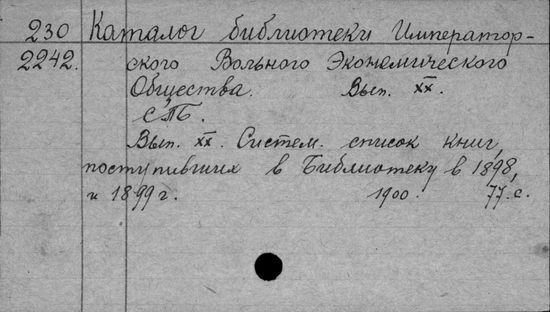 230 Каталог библиотеки Император-
2242. ского Вольного Экономического
Общества. Вып. XX.
СПБ.
Вып. XX. Систем. список книг,
поступивших в Библиотеку в 1898,
и 1899 г. 1900. 77. с.